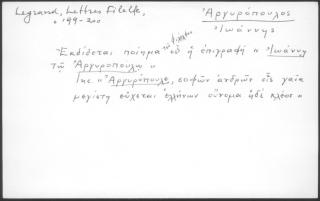 Legrand, Lettres Filelfe,
199-200
Ἀργυρόπουλος
Ἰωάννης
Ἐκδίδεται ποίημα τοῦ Φιλέλφου οὗ ἡ ἐπιγραφή « Ἰωάννῃ
τῷ Ἀργυροπούλῳ »
« Ἀργυρόπουλε, σοφῶν ἀνδρῶν οἷς γαῖα
μεγίστη εὔχεται ἑλλήνων οὔνομα ἠδὲ κλέος »